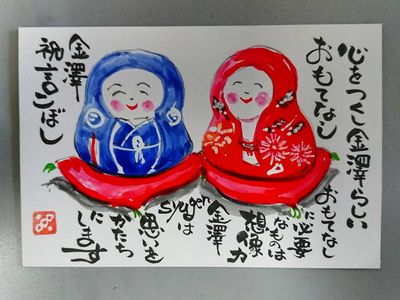 心をつくし金澤らしい
おもてなし
おもてなし
に必要
なものは
想像力
金澤
syugenは
思いを
かたち
にします
金澤
祝言こぼし